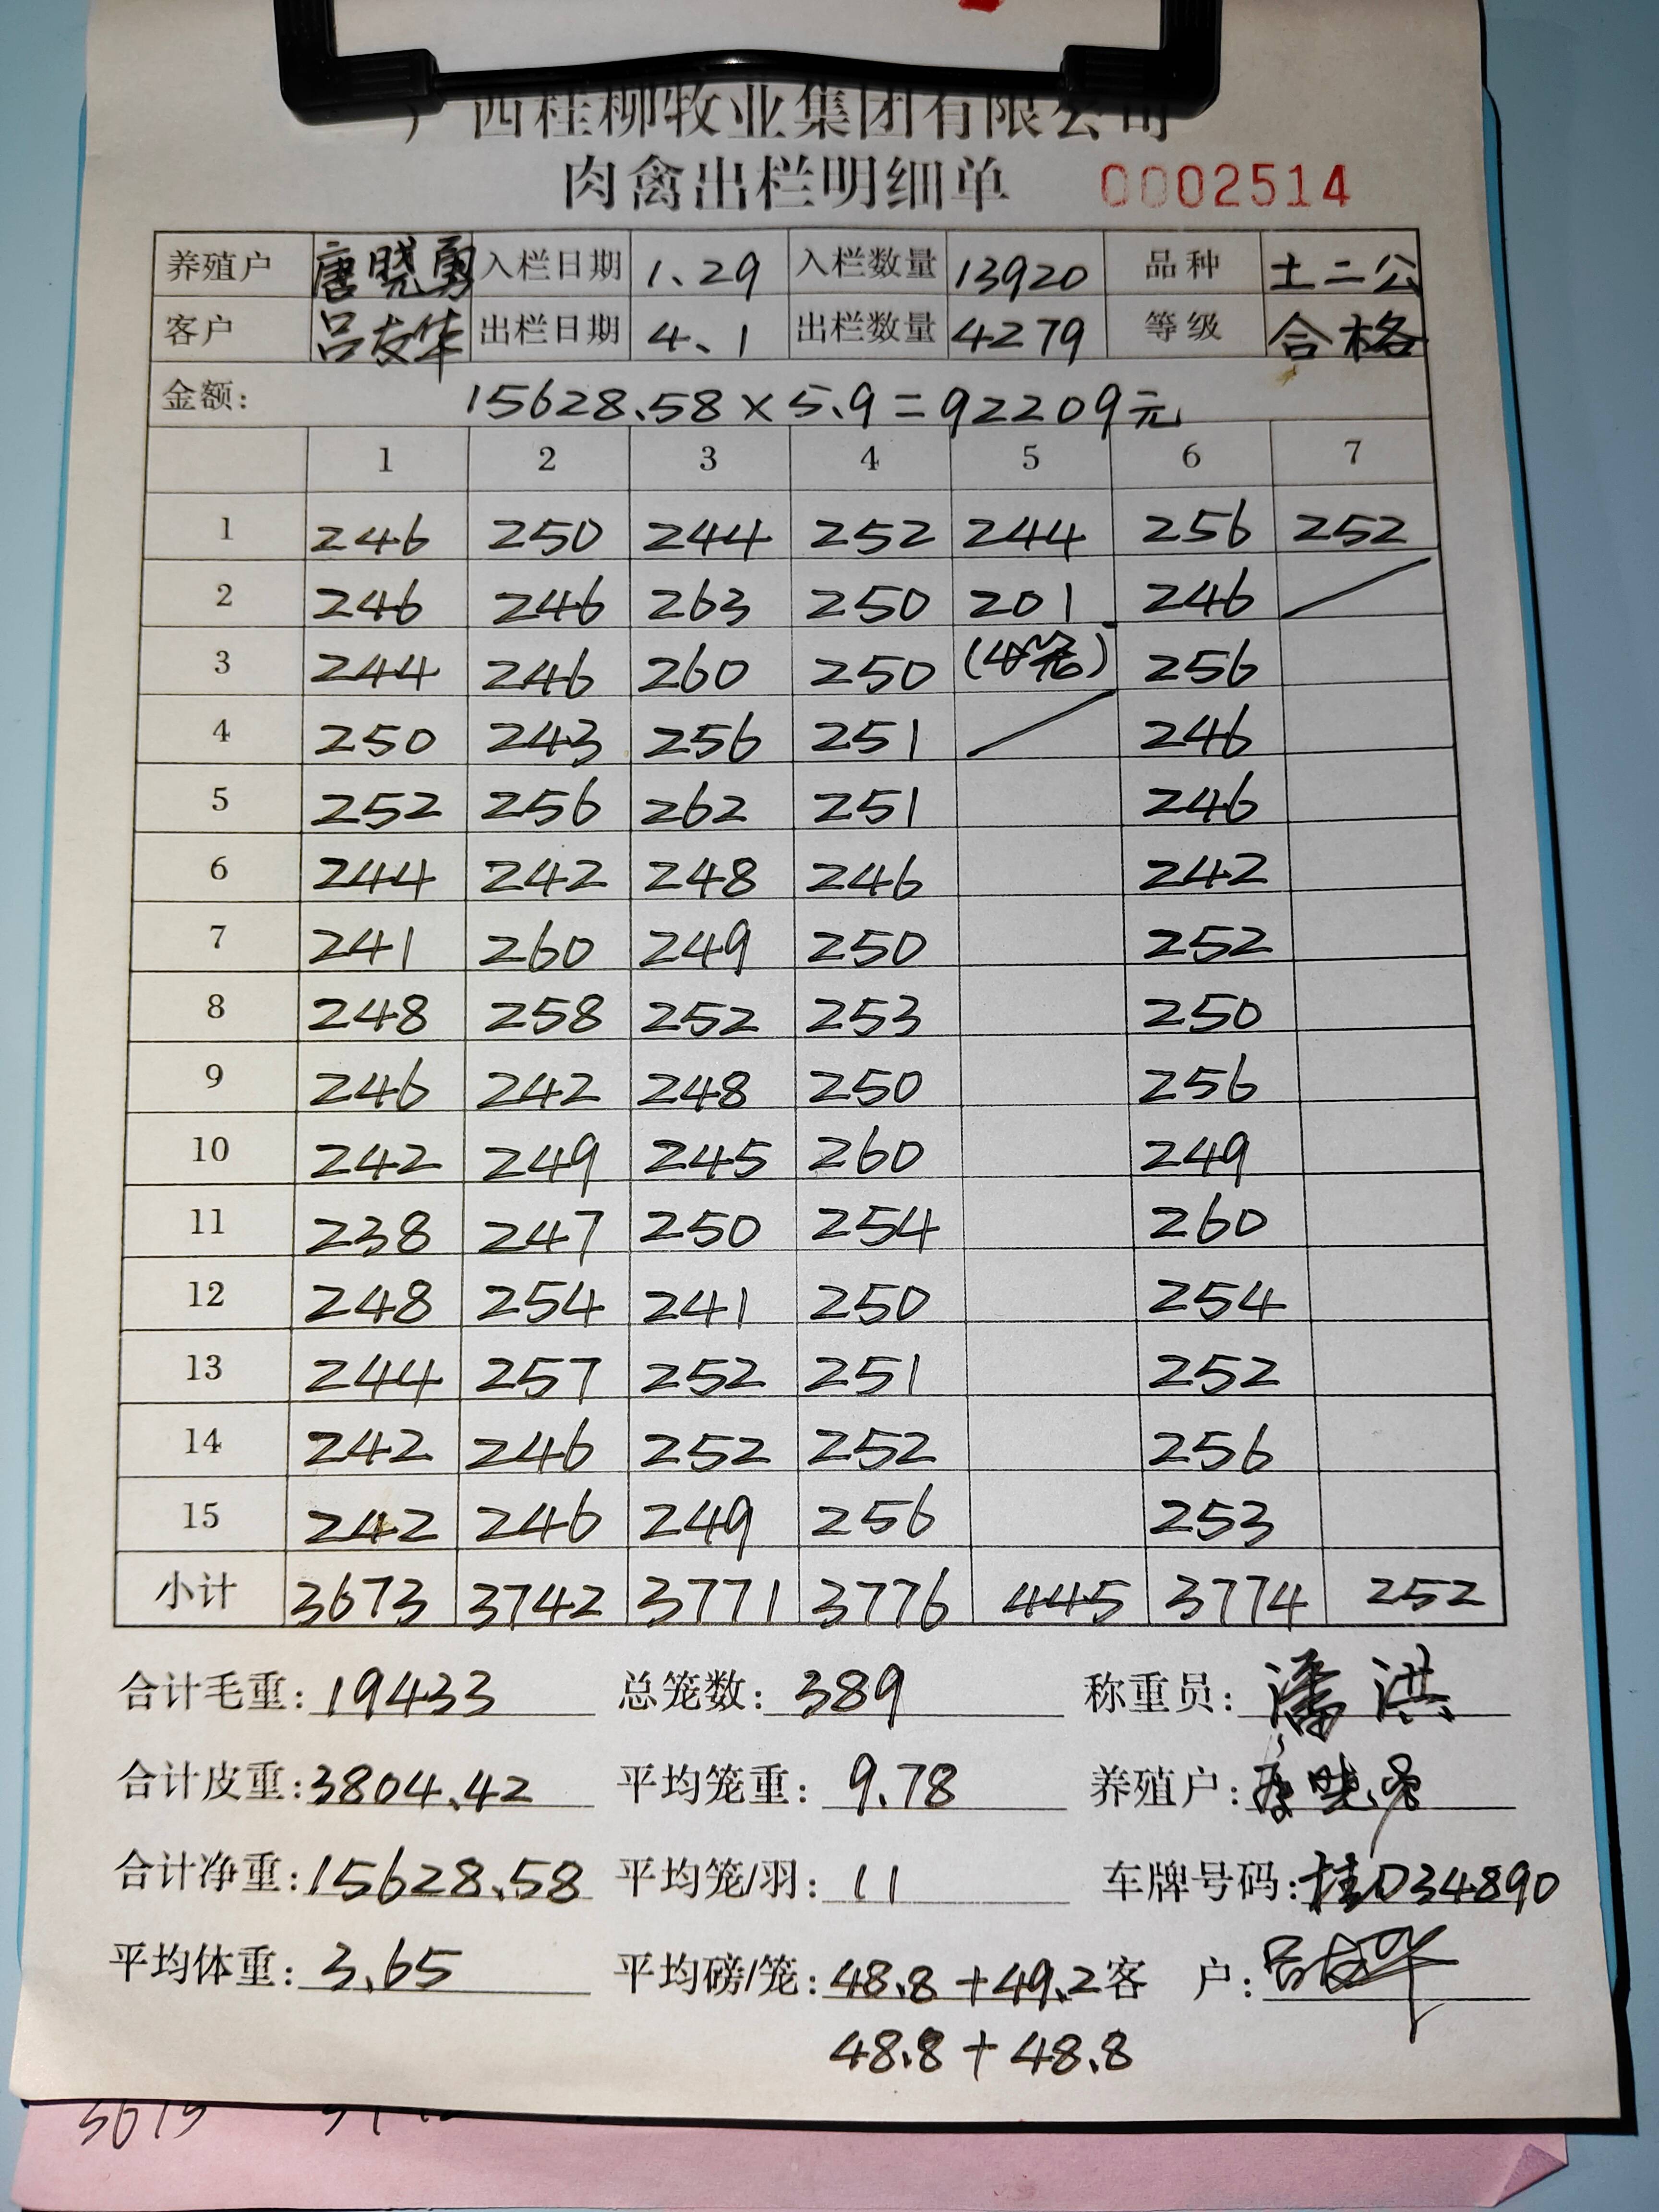 广西桂柳牧业集团有限公司
肉禽出栏明细单 0002514
养殖户 唐晓勇 入栏日期 1.29 入栏数量 13920 品种 土二公
客户 吕友华 出栏日期 4.1 出栏数量 4279 等级 合格
金额: 15628.58×5.9=92209元
1 2 3 4 5 6 7
1 246 250 244 252 244 256 252
2 246 246 263 250 201 246
3 244 246 260 250 (4笼) 256
4 250 243 256 251 246
5 252 256 262 251 246
6 244 242 248 246 242
7 241 260 249 250 252
8 248 258 252 253 250
9 246 242 248 250 256
10 242 249 245 260 249
11 238 247 250 254 260
12 248 254 241 250 254
13 244 257 252 251 252
14 242 246 252 252 256
15 242 246 249 256 253
小计 3673 3742 3771 3776 445 3774 252
合计毛重: 19433 总笼数: 389 称重员: 潘洪
合计皮重: 3804.42 平均笼重: 9.78 养殖户: 唐晓勇
合计净重: 15628.58 平均笼/羽: 11 车牌号码: 桂D34890
平均体重: 3.65 平均磅/笼: 48.8+49.2 客户: 吕友华
48.8+48.8